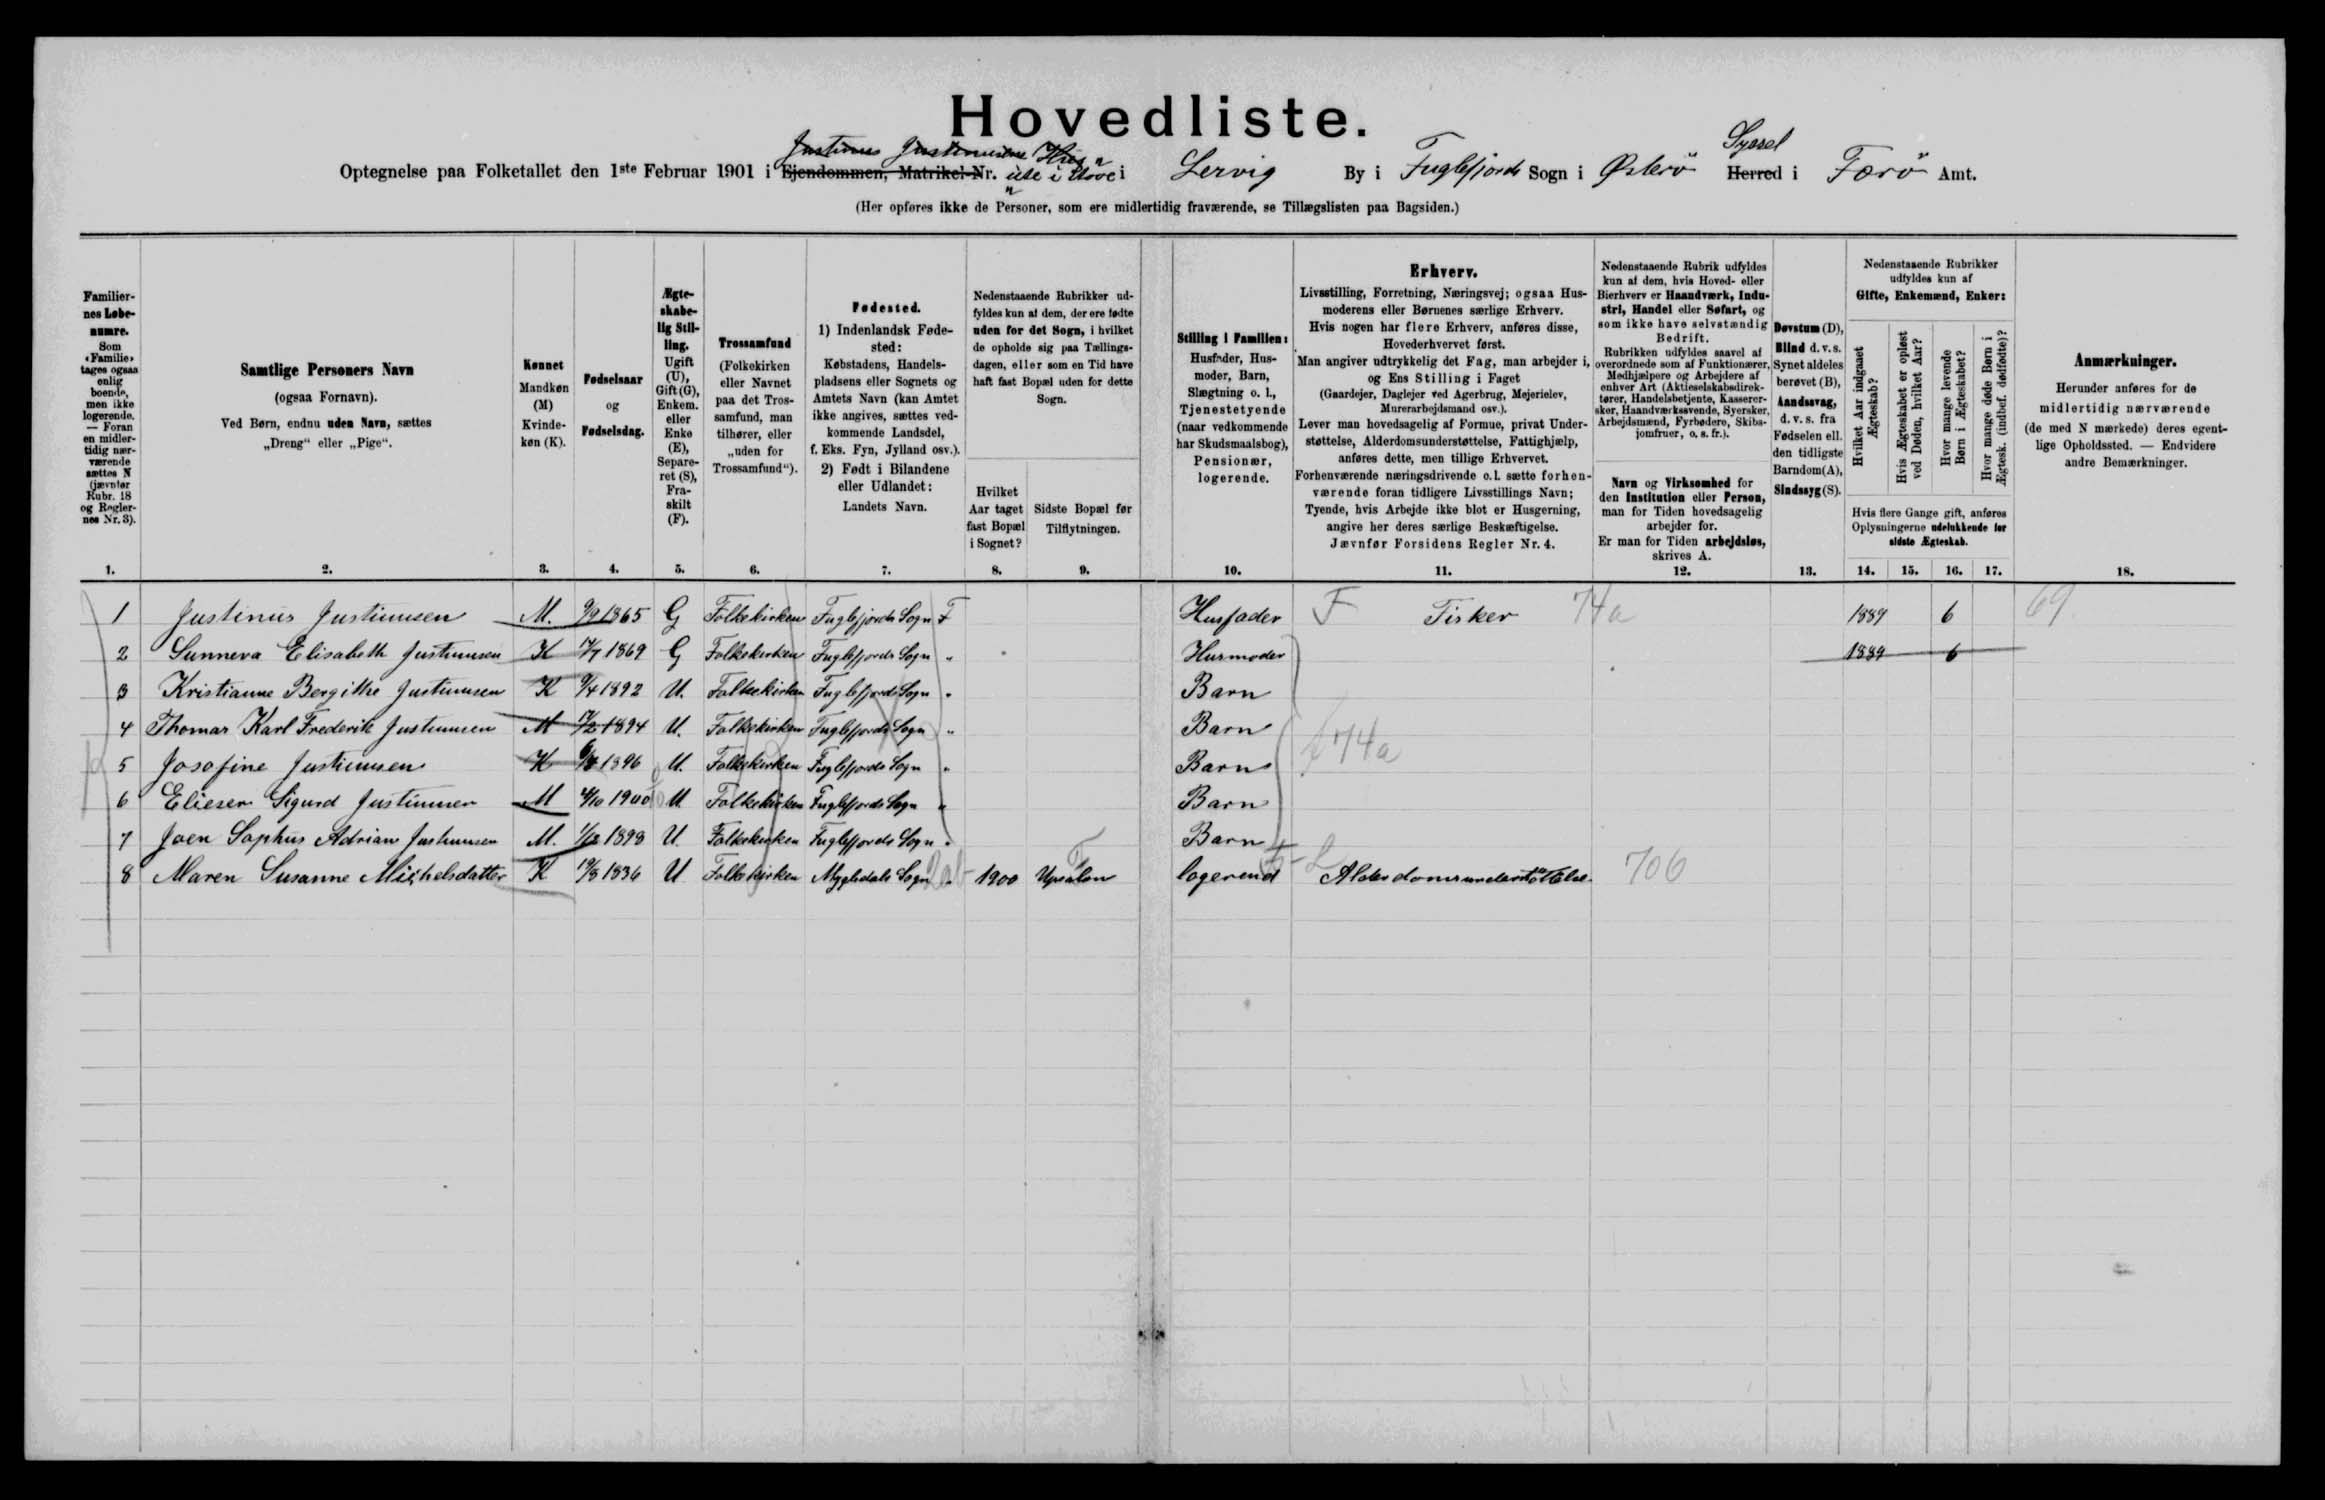 Hovedliste.
Justinus Justinusens Hus Syssel
Optegnelse paa Folketallet den 1ste Februar 1901 i Ejendommen, Matrikel-Nr. "ute i Stove" i Lervig By i Fuglefjords Sogn i Østerö Herred i Færö Amt.
(Her opføres ikke de Personer, som ere midlertidig fraværende, se Tillægslisten paa Bagsiden.)
Familiernes Løbenumre.
Som «Familie» tages ogsaa enlig boende, men ikke logerende. — Foran en midlertidig nærværende sættes N (jævnfør Rubr. 18 og Reglernes Nr. 3).
1.
Samtlige Personers Navn
(ogsaa Fornavn).
Ved Børn, endnu uden Navn, sættes
„Dreng“ eller „Pige“.
2.
Kønnet
Mandkøn (M)
Kvindekøn (K).
3.
Fødselsaar
og
Fødselsdag.
4.
Ægteskabelig Stilling.
Ugift (U), Gift (G), Enkem. eller Enke (E), Separeret (S), Fraskilt (F).
5.
Trossamfund
(Folkekirken eller Navnet paa det Trossamfund, man tilhører, eller „uden for Trossamfund“).
6.
Fødested.
1) Indenlandsk Fødested:
Købstadens, Handelspladsens eller Sognets og Amtets Navn (kan Amtet ikke angives, sættes vedkommende Landsdel, f. Eks. Fyn, Jylland osv.).
2) Født i Bilandene eller Udlandet:
Landets Navn.
7.
Nedenstaaende Rubrikker udfyldes kun af dem, der ere fødte uden for det Sogn, i hvilket de opholde sig paa Tællingsdagen, eller som en Tid have haft fast Bopæl uden for dette Sogn.
Hvilket Aar taget fast Bopæl i Sognet?
8.
Sidste Bopæl før Tilflytningen.
9.
Stilling i Familien:
Husfader, Husmoder, Barn, Slægtning o. l., Tjenestetyende (naar vedkommende har Skudsmaalsbog), Pensionær, logerende.
10.
Erhverv.
Livsstilling, Forretning, Næringsvej; ogsaa Husmoderens eller Børnenes særlige Erhverv.
Hvis nogen har flere Erhverv, anføres disse, Hovederhvervet først.
Man angiver udtrykkelig det Fag, man arbejder i, og Ens Stilling i Faget
(Gaardejer, Daglejer ved Agerbrug, Mejerielev, Murerarbejdsmand osv.).
Lever man hovedsagelig af Formue, privat Understøttelse, Alderdomsunderstøttelse, Fattighjælp, anføres dette, men tillige Erhvervet.
Forhenværende næringsdrivende o. l. sætte forhenværende foran tidligere Livsstillings Navn;
Tyende, hvis Arbejde ikke blot er Husgerning, angive her deres særlige Beskæftigelse.
Jævnfør Forsidens Regler Nr. 4.
11.
Nedenstaaende Rubrik udfyldes kun af dem, hvis Hoved- eller Bierhverv er Haandværk, Industri, Handel eller Søfart, og som ikke have selvstændig Bedrift.
Rubrikken udfyldes saavel af overordnede som af Funktionærer, Medhjælpere og Arbejdere af enhver Art (Aktieselskabsdirektører, Handelsbetjente, Kasserersker, Haandværkssvende, Syersker, Arbejdsmænd, Fyrbødere, Skibsjomfruer, o. s. fr.).
Navn og Virksomhed for den Institution eller Person, man for Tiden hovedsagelig arbejder for.
Er man for Tiden arbejdsløs, skrives A.
12.
Døvstum (D), Blind d. v. s. Synet aldeles berøvet (B), Aandssvag, d. v. s. fra Fødselen ell. den tidligste Barndom (A), Sindssyg (S).
13.
Nedenstaaende Rubrikker udfyldes kun af
Gifte, Enkemænd, Enker:
Hvilket Aar indgaaet Ægteskab?
Hvis Ægteskabet er opløst ved Døden, hvilket Aar?
Hvor mange levende Børn i Ægteskabet?
Hvor mange døde Børn i Ægtesk. (indbef. dødfødte)?
Hvis flere Gange gift, anføres Oplysningerne udelukkende for sidste Ægteskab.
14. 15. 16. 17.
Anmærkninger.
Herunder anføres for de midlertidig nærværende (de med N mærkede) deres egentlige Opholdssted. — Endvidere andre Bemærkninger.
18.
1 Justinus Justinusen M. 9/9 1865 G Folkekirken Fuglefjords Sogn F Husfader F Fisker 74a 1889 6 69.
2 Sunneva Elisabeth Justinusen K 14/7 1869 G Folkekirken Fuglefjords Sogn " Husmoder 1889 6
3 Kristianne Bergithe Justinusen K 9/4 1892 U. Folkekirken Fuglefjords Sogn " Barn
4 Thomas Karl Frederik Justinusen M 1894 U. Folkekirken Fuglefjords Sogn " Barn
f 74a
5 Josofine Justinusen K 1896 U. Folkekirken Fuglefjords Sogn " Barn
6 Elieser Sigurd Justinusen M 4/10 1900 U Folkekirken Fuglefjords Sogn " Barn
7 Joen Sophus Adrian Justinusen M. 1/12 1898 U. Folkekirken Fuglefjords Sogn " Barn
8 Maren Susanne Michelsdatter K 19/8 1836 U Folkekirken Myglédals Sogn 1900 Upsalon logerend Alderdomsunderstöttelse 706